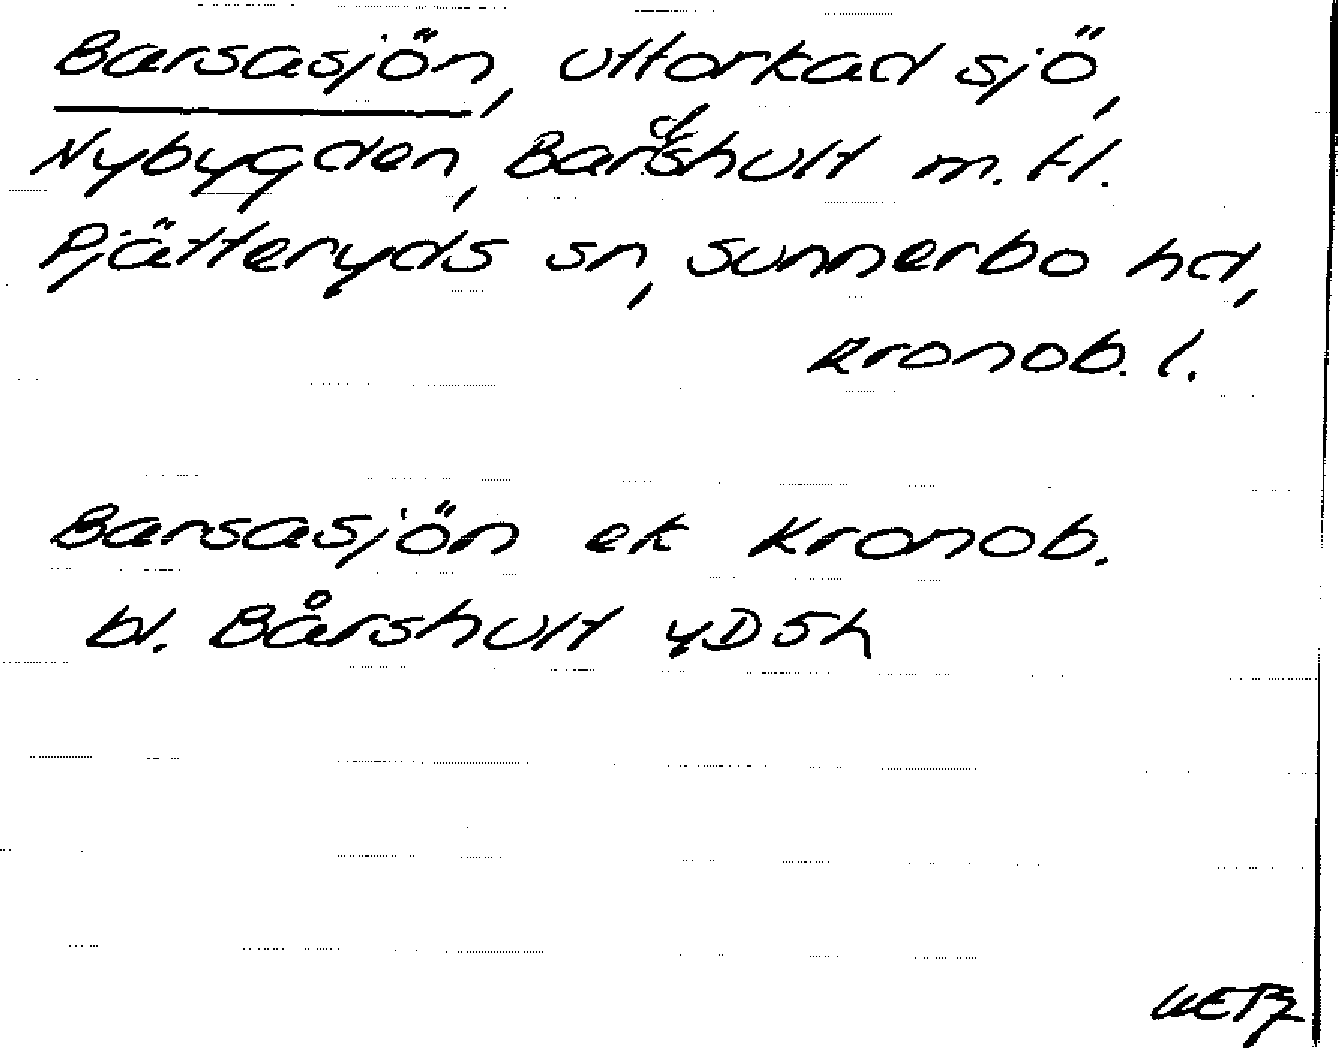 Barsasjön, uttorkad sjö,
Nybygden, Barshult m. fl.
Pjätteryds sn, Sunnerbo hd,
Kronob. l.
Barsasjön ek Kronob.
bl. Bårshult 4D5h